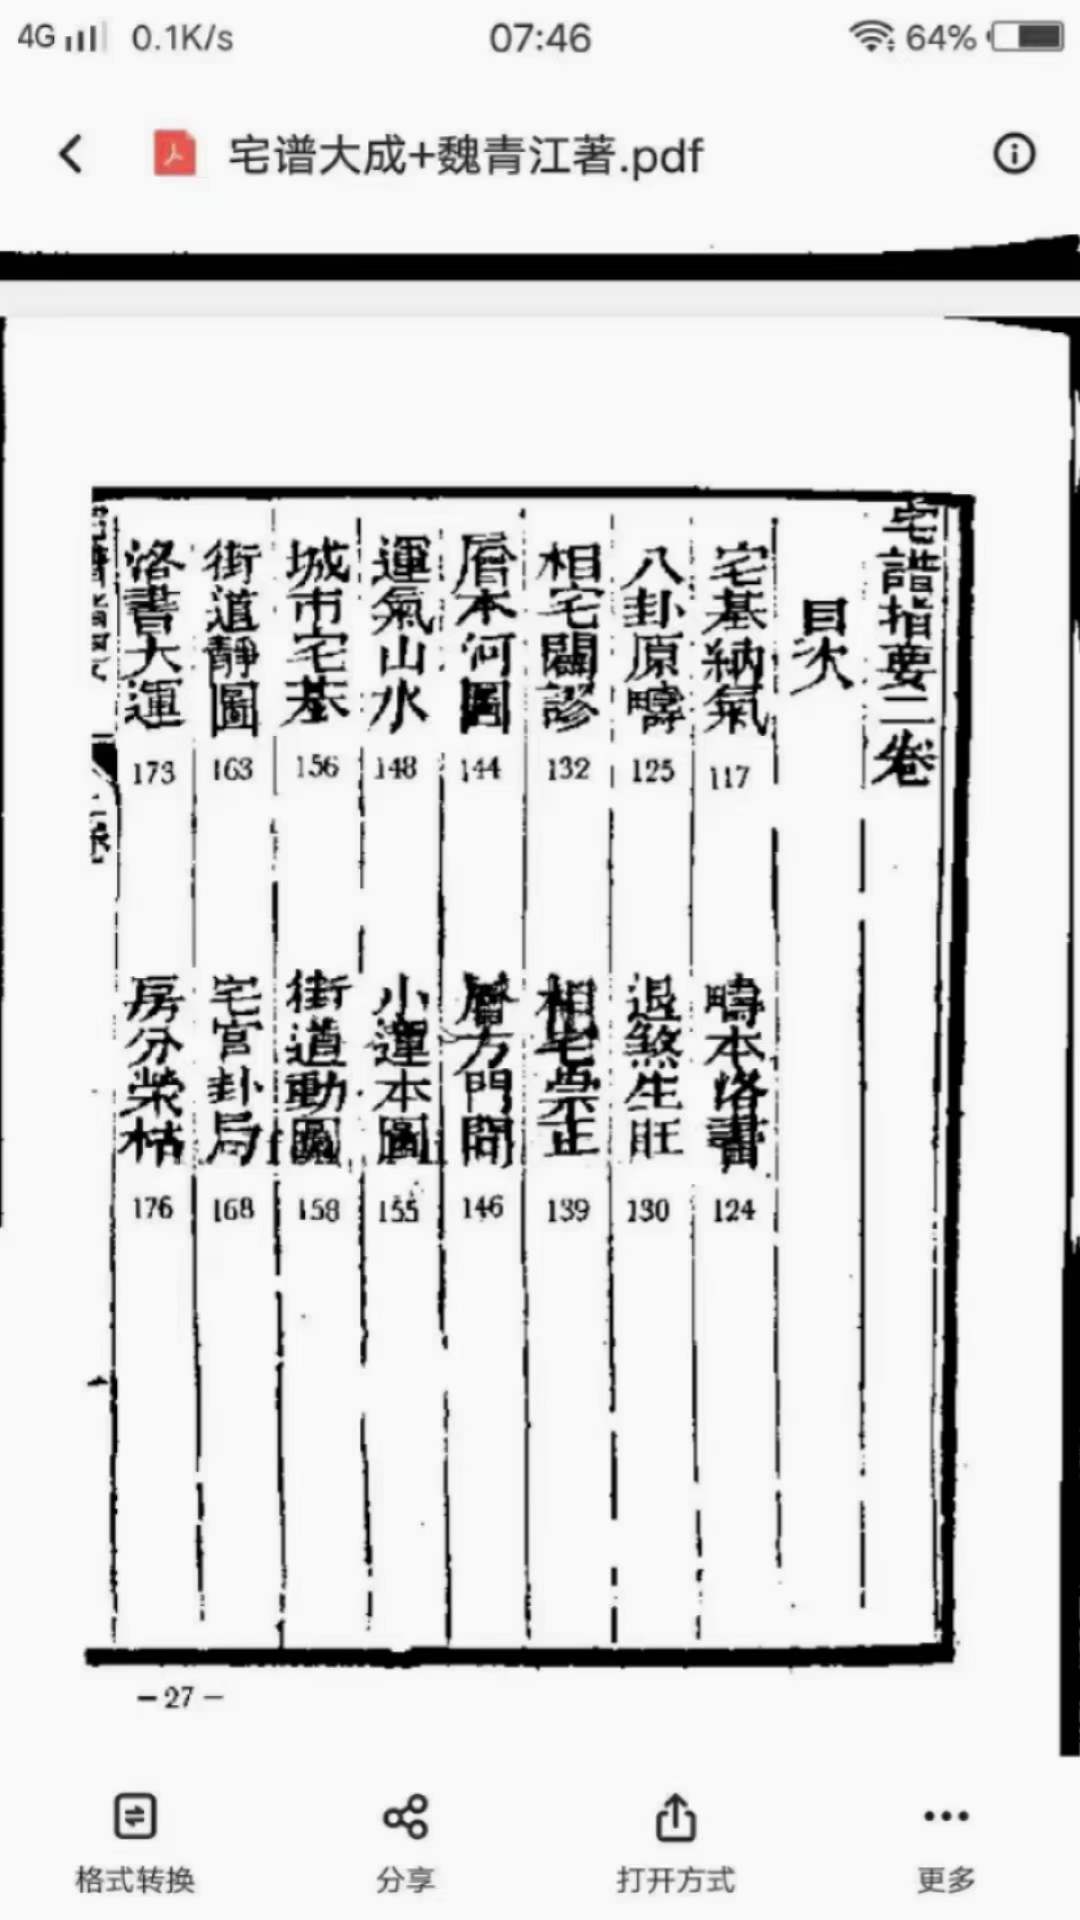 4G 0.1K/s 07:46 64%
宅谱大成+魏青江著.pdf
宅譜指要二卷
目次
宅基納氣 117 疇本洛書 124
八卦原疇 125 退煞生旺 130
相宅闢謬 132 相宅崇正 139
層本河圖 144 層方門問 146
運氣山水 148 小運本圖 155
城市宅基 156 街道動圖 158
街道靜圖 163 宅宮卦局 168
洛書大運 173 房分榮枯 176
－27－
格式转换 分享 打开方式 更多